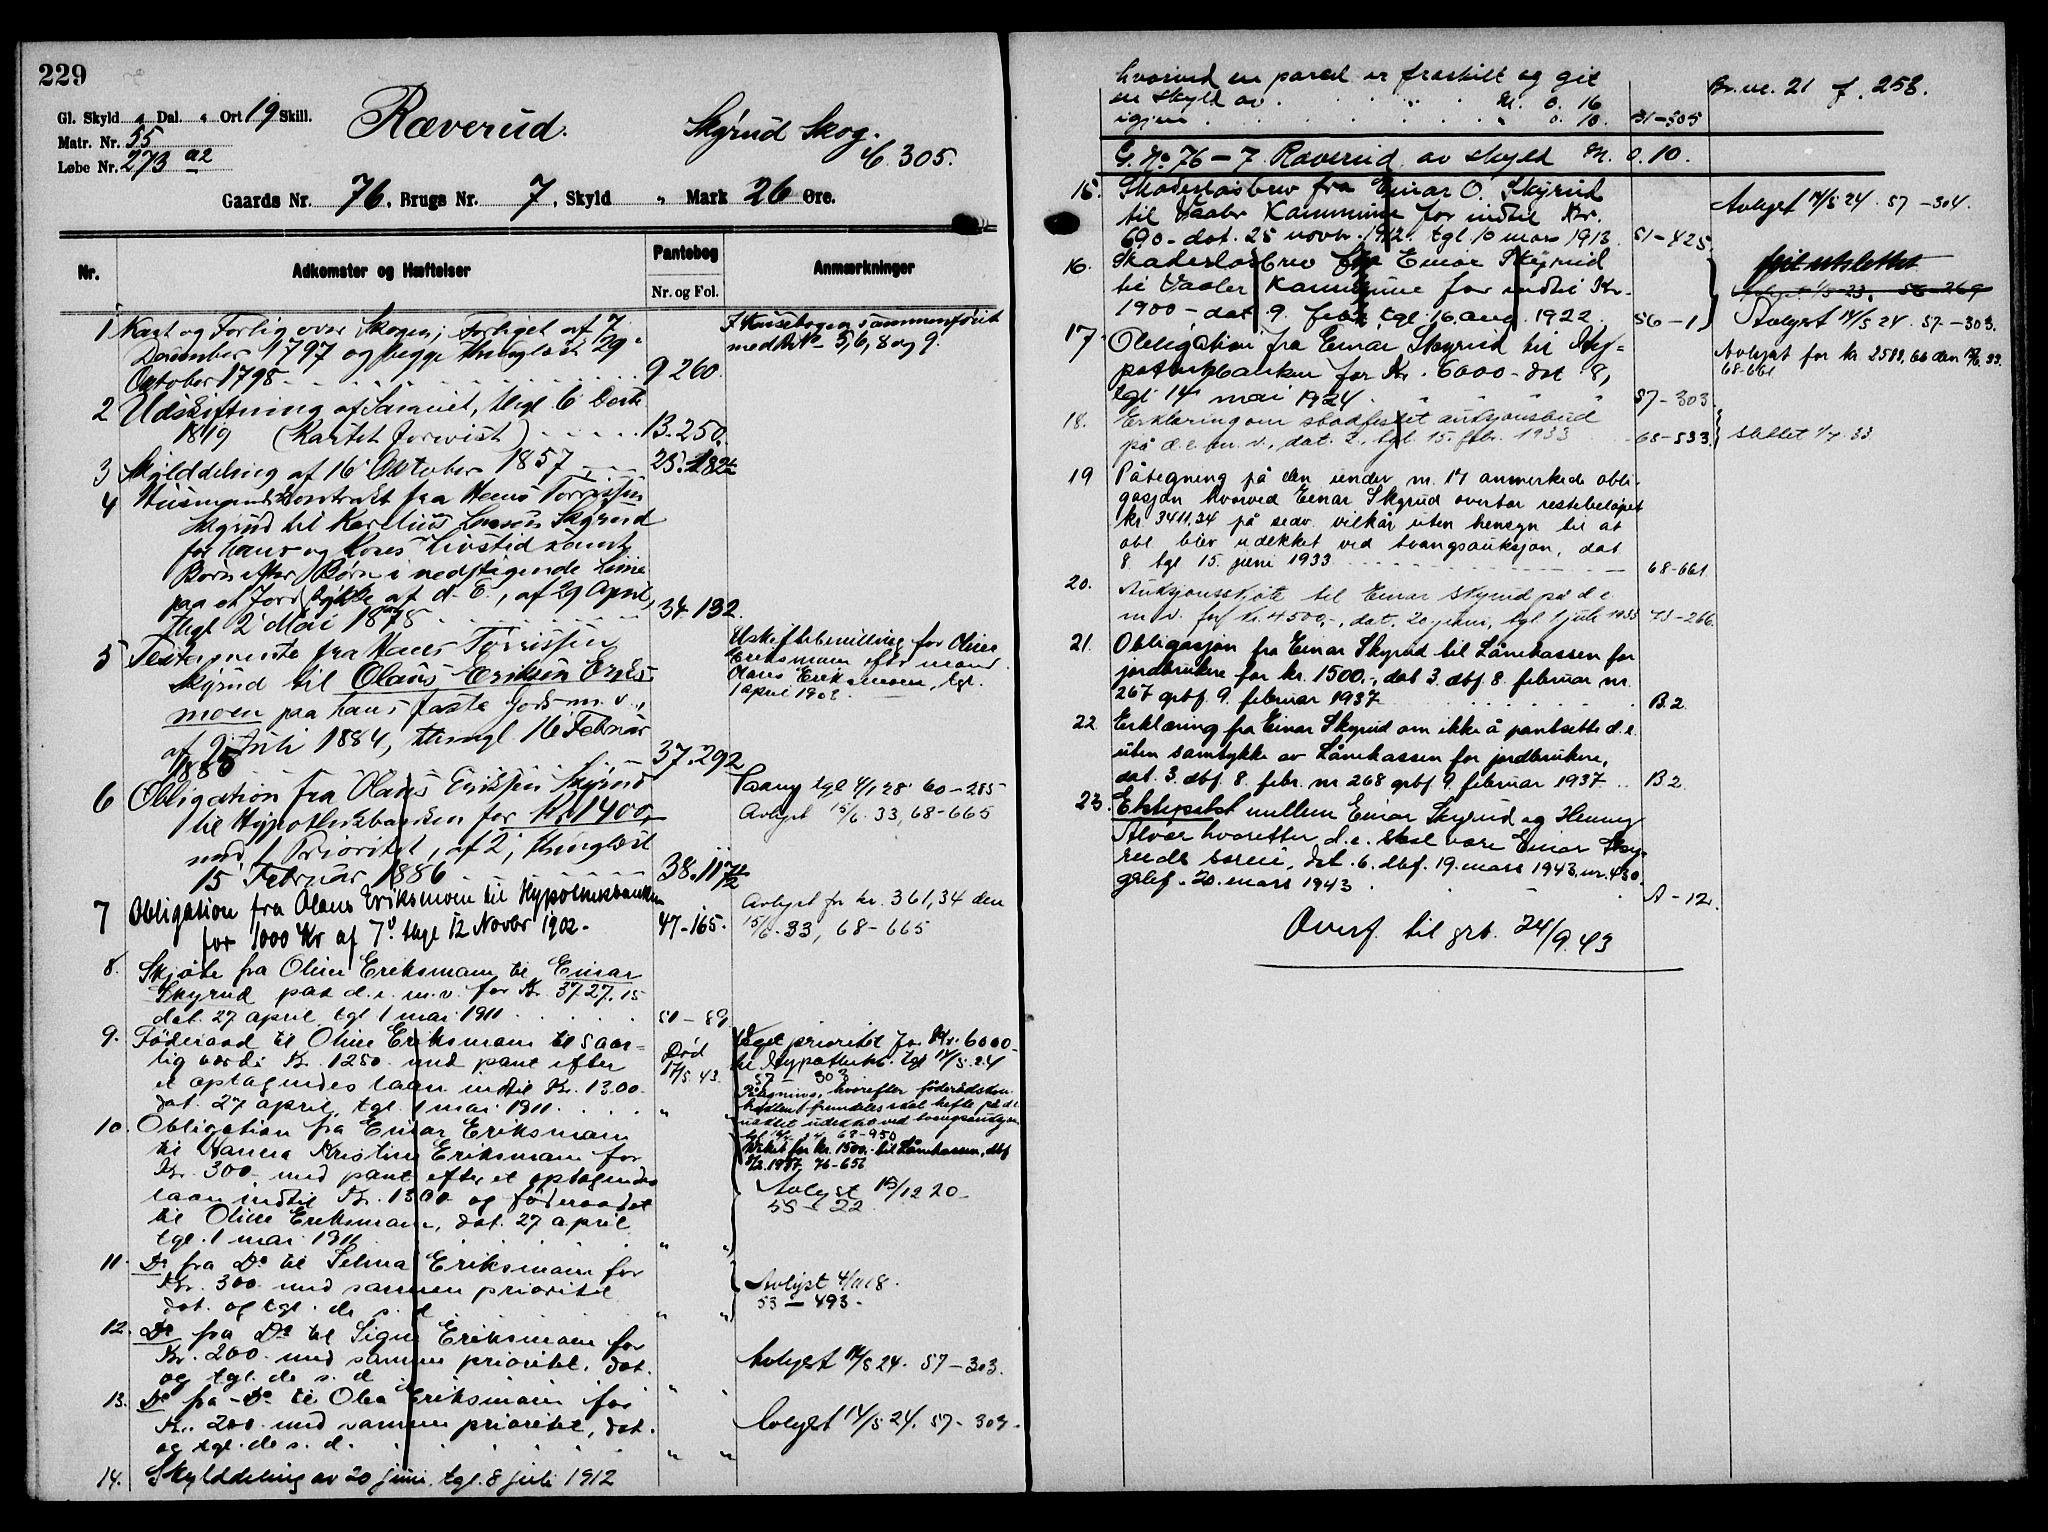 229
Gl. Skyld „ Dal. „ Ort 19 Skill.
Matr. Nr. 55
Løbe Nr. 273 a2
Ræverud.
Skyrud Skog.
f. 305.
Gaards Nr. 76, Brugs Nr. 7, Skyld „ Mark 26 Øre.
Nr.
Adkomster og Hæftelser
Pantebog
Nr. og Fol.
Anmærkninger
1 Kart og Forlig over Skogen; Forliget af 7
December 1797 og begge thinglæst 29
Oktober 1798 9 260.
I Husebogen sammenført
med 5, 6, 8 og 9.
2 Udskiftning af Sameiet, thgl 6
1819 (Kartet forevist) 13.250.
3 Skylddeling af 16 Oktober 1857 25.182
4 Husmandskontrakt fra Hans Torrissen
Skyrud til Karelius Larsen Skyrud
for hans og Kones Livstid samt
Børn efter Børn i nedstigende Linie
paa et Jordstykke af d. E., af 29 April,
thgl 2 Mai 1878 34.132.
5 Testamente fra Hans Torrissen
Skyrud til Olaus Eriksen Eriks-
moen paa hans faste Gods m. v.,
af Juli 1884, thingl 16 Februar
1885 37.292
Uskiftebevilling for Oline
Eriksmoen efter mand
Olaus Eriksmoen, tgl.
1 april 1902
6 Obligation fra Olaus Eriksen Skyrud
til Hypothekbanken for Kr 1400,
med 1 Prioritet, af 2, thinglæst
15 Februar 1886 38.117
tgl 4/1 28 60-285
Avlyst 15/6. 33, 68-665
7 Obligation fra Olaus Eriksmoen til Hypothekbanken
for 1000 Kr af 7, thgl 12 Novbr 1902. 47-165.
Avlyst for kr. 361,34 den
15/6-33, 68-665
8. Skjøte fra Oline Eriksmoen til Einar
Skyrud paa d. e. m. v. for Kr. 3727.15
dat. 27 april, tgl 1 mai 1911 51-89
9. Föderaad til Oline Eriksmoen til 5 aar-
lig værdi Kr. 1250 med pant efter
et optagendes laan indtil Kr. 1300.
dat. 27 april, tgl. 1 mai 1911
Død
17/5.43.
Veget prioritet for Kr. 6000-
til Hypothekb. tgl 14/5.24
57-303
Påtegning, hvorefter föderådskon-
trakten fremdeles skal hefte på d.e.
uanset udekket ved tvangsauksjon
68-950
Veket for kr. 1500.- til Lånekassen, dbf
1937 76-656
10. Obligation fra Einar Eriksmoen
til Hanna Kristine Eriksmoen for
Kr. 300. med pant efter et optagendes
laan indtil Kr. 1300 og föderaadet
til Oline Eriksmoen, dat. 27 april
tgl. 1 mai 1911
Avlyst 15/12 20
55-22
11. Do fra Do til Selma Eriksmoen for
Kr. 300. med samme prioritet
dat. og tgl. de s. d.
Avlyst 4/11 18.
53-493.
12. Do fra Do til Signe Eriksmoen for
Kr. 200. med samme prioritet, dat.
og tgl. de s. d.
Avlyst 14/5 24. 57-303.
13. Do fra Do til Olea Eriksmoen for
Kr. 200. med samme prioritet, dat.
og tgl. de s. d.
Avlyst 14/5 24. 57-303.
14. Skylddeling av 20 juni. tgl. 8 juli 1912
hvorved en parcel er fraskilt og git
en skyld av M. 0. 16
igjen „ 0. 10. 31-505
Br. nr. 21 f. 258.
G. No 76-7 Ræverud av skyld M. 0.10.
15. Skadesløsbrev fra Einar O. Skyrud
til Vaaler Kommune for indtil Kr.
690- dat. 25 novbr. 1912. tgl. 10 mars 1913. 51-425
Avlyst 14/5 24. 57-304.
16. Skadesløsbrev fra Einar Skyrud
til Vaaler Kommune for indtil Kr.
1900- dat. 9. febr. tgl. 16. aug. 1922. 56-1
feil utslettet
Avlyst 14/5 24. 57-303.
17 Obligation fra Einar Skyrud til Hy-
potekbanken for Kr. 6000- dat 8,
tgl 14 mai 1924 57-303
Avlyst for kr 2589,66 den 15/6.33.
68-661
18. Erklæring om stadfestet auksjonsbud
på d. e. m. v., dat. 2, tgl. 15. febr. 1933 68-533
slettet 1/7 33
19 Påtegning på den under nr. 17 anmerkede obli-
gasjon hvorved Einar Skyrud overtar restebeløpet
kr. 3411,34 på sedv. vilkår uten hensyn til at
obl blev udekket ved tvangsauksjon, dat
8 tgl 15. juni 1933 68-661
20. Auksjonsskjøte til Einar Skyrud på d e
m. v. for kr. 4500,-, dat. 20 juni, tgl 1 juli 1933 73-266
21. Obligasjon fra Einar Skyrud til Lånekassen for
jordbrukere for kr. 1500.-, dat 3. dbf. 8. februar nr.
267 grbf. 9. februar 1937 B.2
22. Erklæring fra Einar Skyrud om ikke å pantsette d. e.
uten samtykke av Lånekassen for jordbrukere,
dat. 3. dbf. 8. febr. nr 268 grbf 9. februar 1937 B2
23. Ektepakt mellem Einar Skyrud og Henny
Alvær hvoretter d. e. skal være Einar Sky-
ruds særeie, dat. 6. dbf. 19. mars 1943. nr. 430.
grbf. 20. mars 1943 A-12.
Overf. til grb. 24/9.43